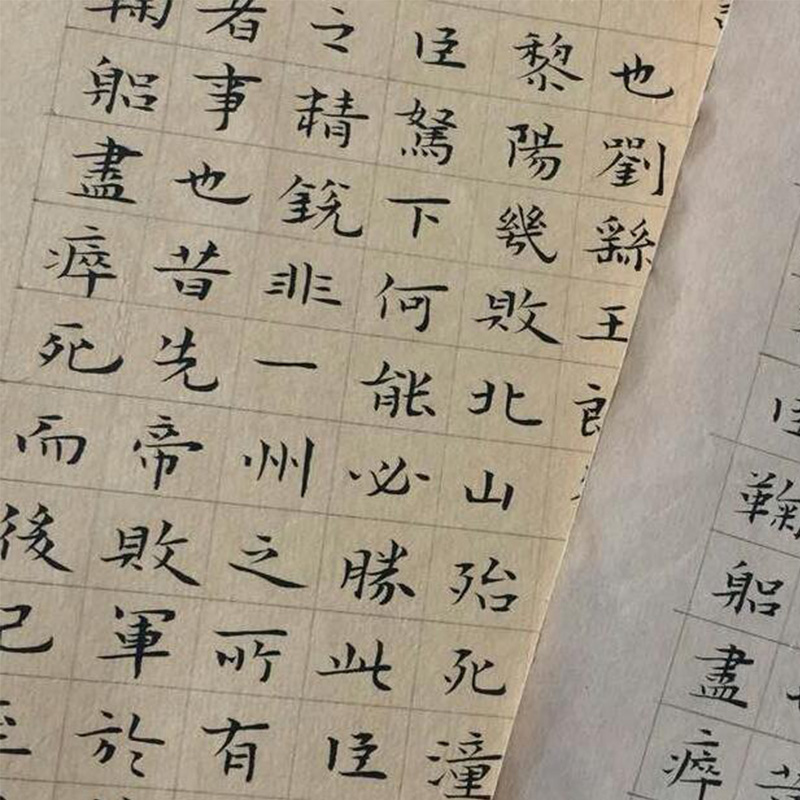 鞠躳盡瘁
也劉繇王郎
黎陽幾敗北山殆死潼
臣駑下何能必勝此臣
之精銳非一州之所有
者事也昔先帝敗軍於
鞠躳盡瘁死而後已至